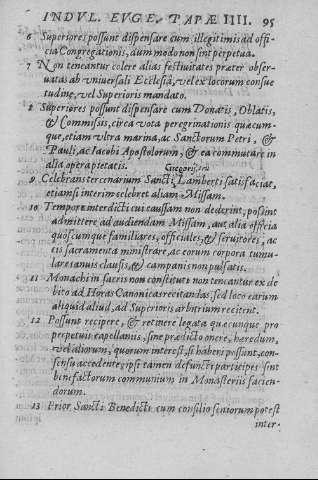 INDVL. EVGE. PAPÆ IIII. 95
6 Superiores possunt dispensare cum illegitimis ad offi-
cia Congregationis, dum modo non sint perpetua.
7 Non teneantur colere alias festiuitates præter obser-
uatas ab vniuersali Ecclesia, vel ex locorum consue
tudine, vel Superioris mandato.
8 Superiores possunt dispensare cum Donatis, Oblatis,
& Commissis, circa vota peregrinationis quæcum-
que, etiam vltra marina, ac Sanctorum Petri, &
Pauli, ac Iacobi Apostolorum, & ea commutare in
alia opera pietatis.
Gregorij
9 Celebrans tercenarium Sancti Lamberti satisfaciat,
etiamsi interim celebret aliam Missam.
10 Tempore interdicti cui caussam non dederint, possint
admittere ad audiendam Missam, aut alia officia
quoscumque familiares, officiales, & seruitores, ac
eis sacramenta ministrare, ac eorum corpora tumu-
lare ianuis clausis, & campanis non pulsatis.
11 Monachi in sacris non constituti non tenentur ex de
bito ad Horas Canonicas recitandas sed loco earum
aliquid aliud, ad Superioris arbitrium recitent.
12 Possunt recipere, & retinere legata quæcunque pro
perpetuis capellaniis, sine prædicto onere, heredum,
vel aliorum, quorum interest, si haberi possunt, con-
sensu accedente, ipsi tamen defuncti participes sint
benefactorum communium in Monasteriis facien-
dorum.
13 Prior Sancti Benedicti cum consilio seniorum potest
inter-